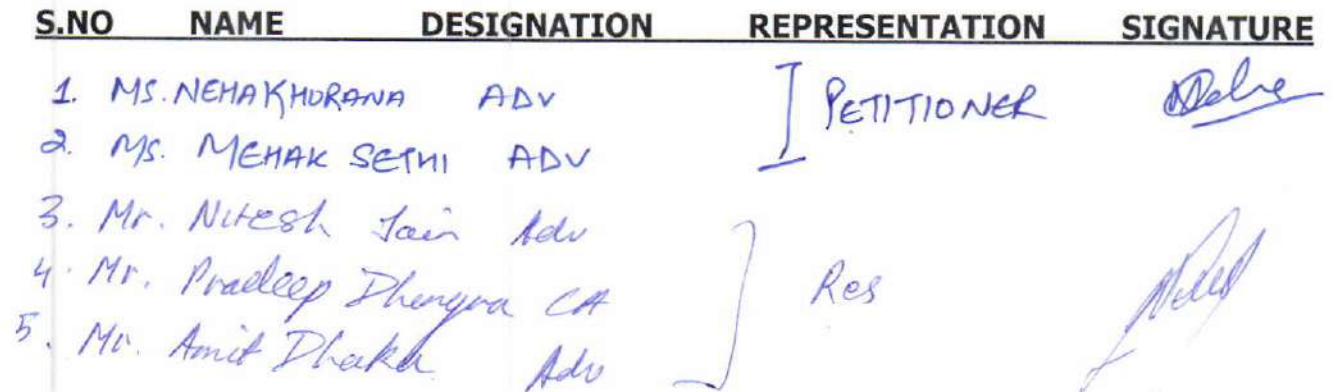 S.NO NAME DESIGNATION REPRESENTATION SIGNATURE
1. MS. NEHA KHURANA ADV PETITIONER
2. MS. MEHAK SETHI ADV
3. Mr. Nitesh Jain Adv
4. Mr. Pradeep Dhengra CA Res
5. Mr. Amit Dhaka Adv